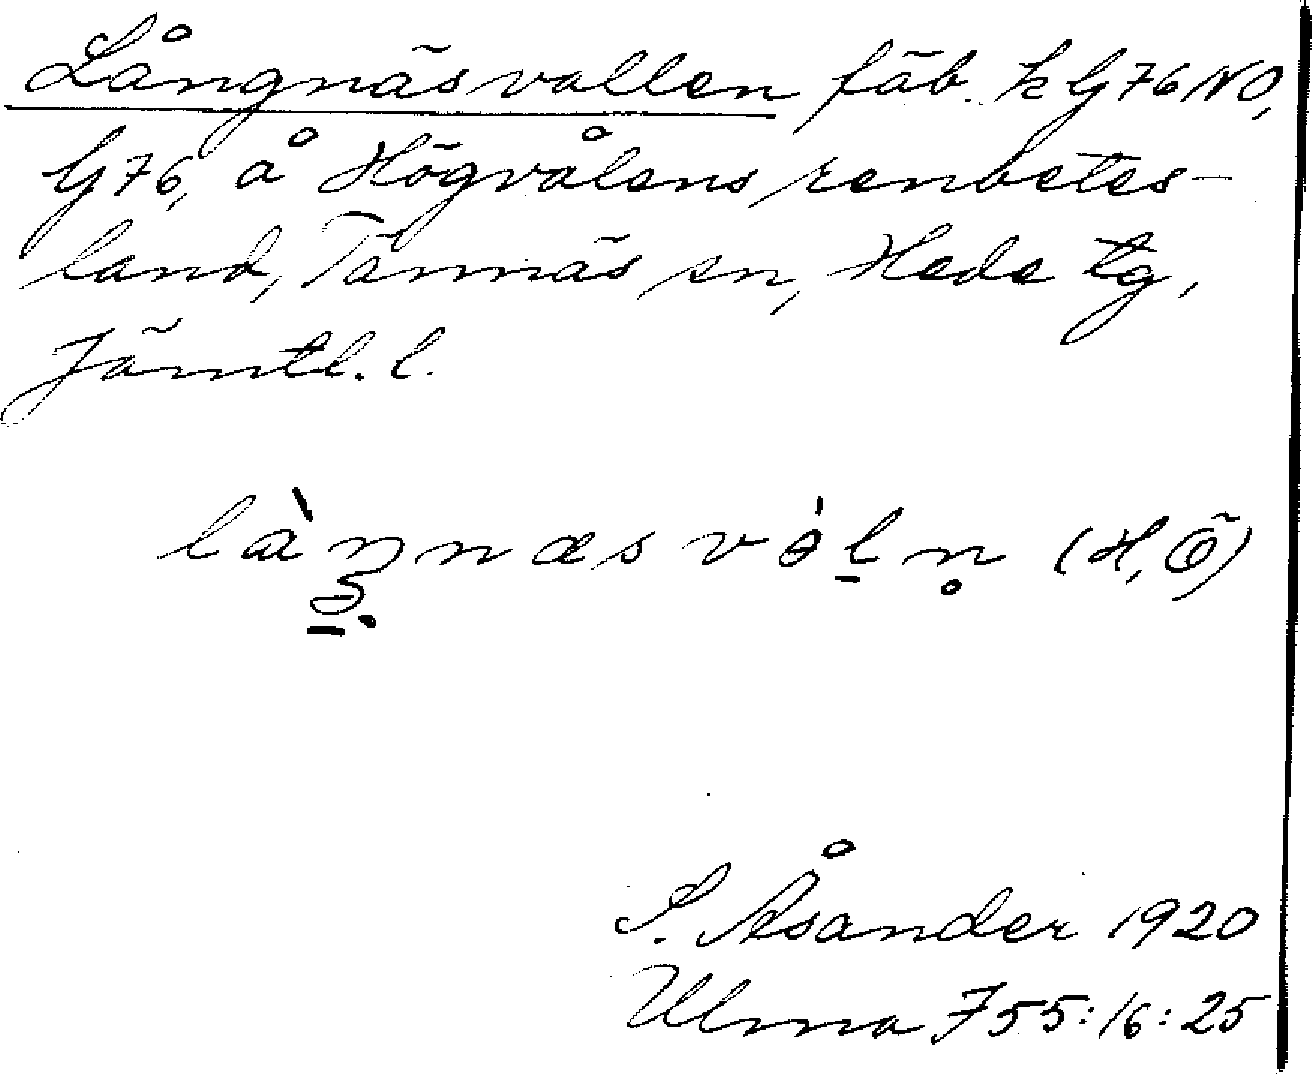 Långnäsvallen fäb. k G76NO,
G76, å Högvålens renbetes-
land, Tännäs sn, Hede tg,
Jämtl. l.
(H, Ö)
S. Åsander 1920
Ulma 755:16:25